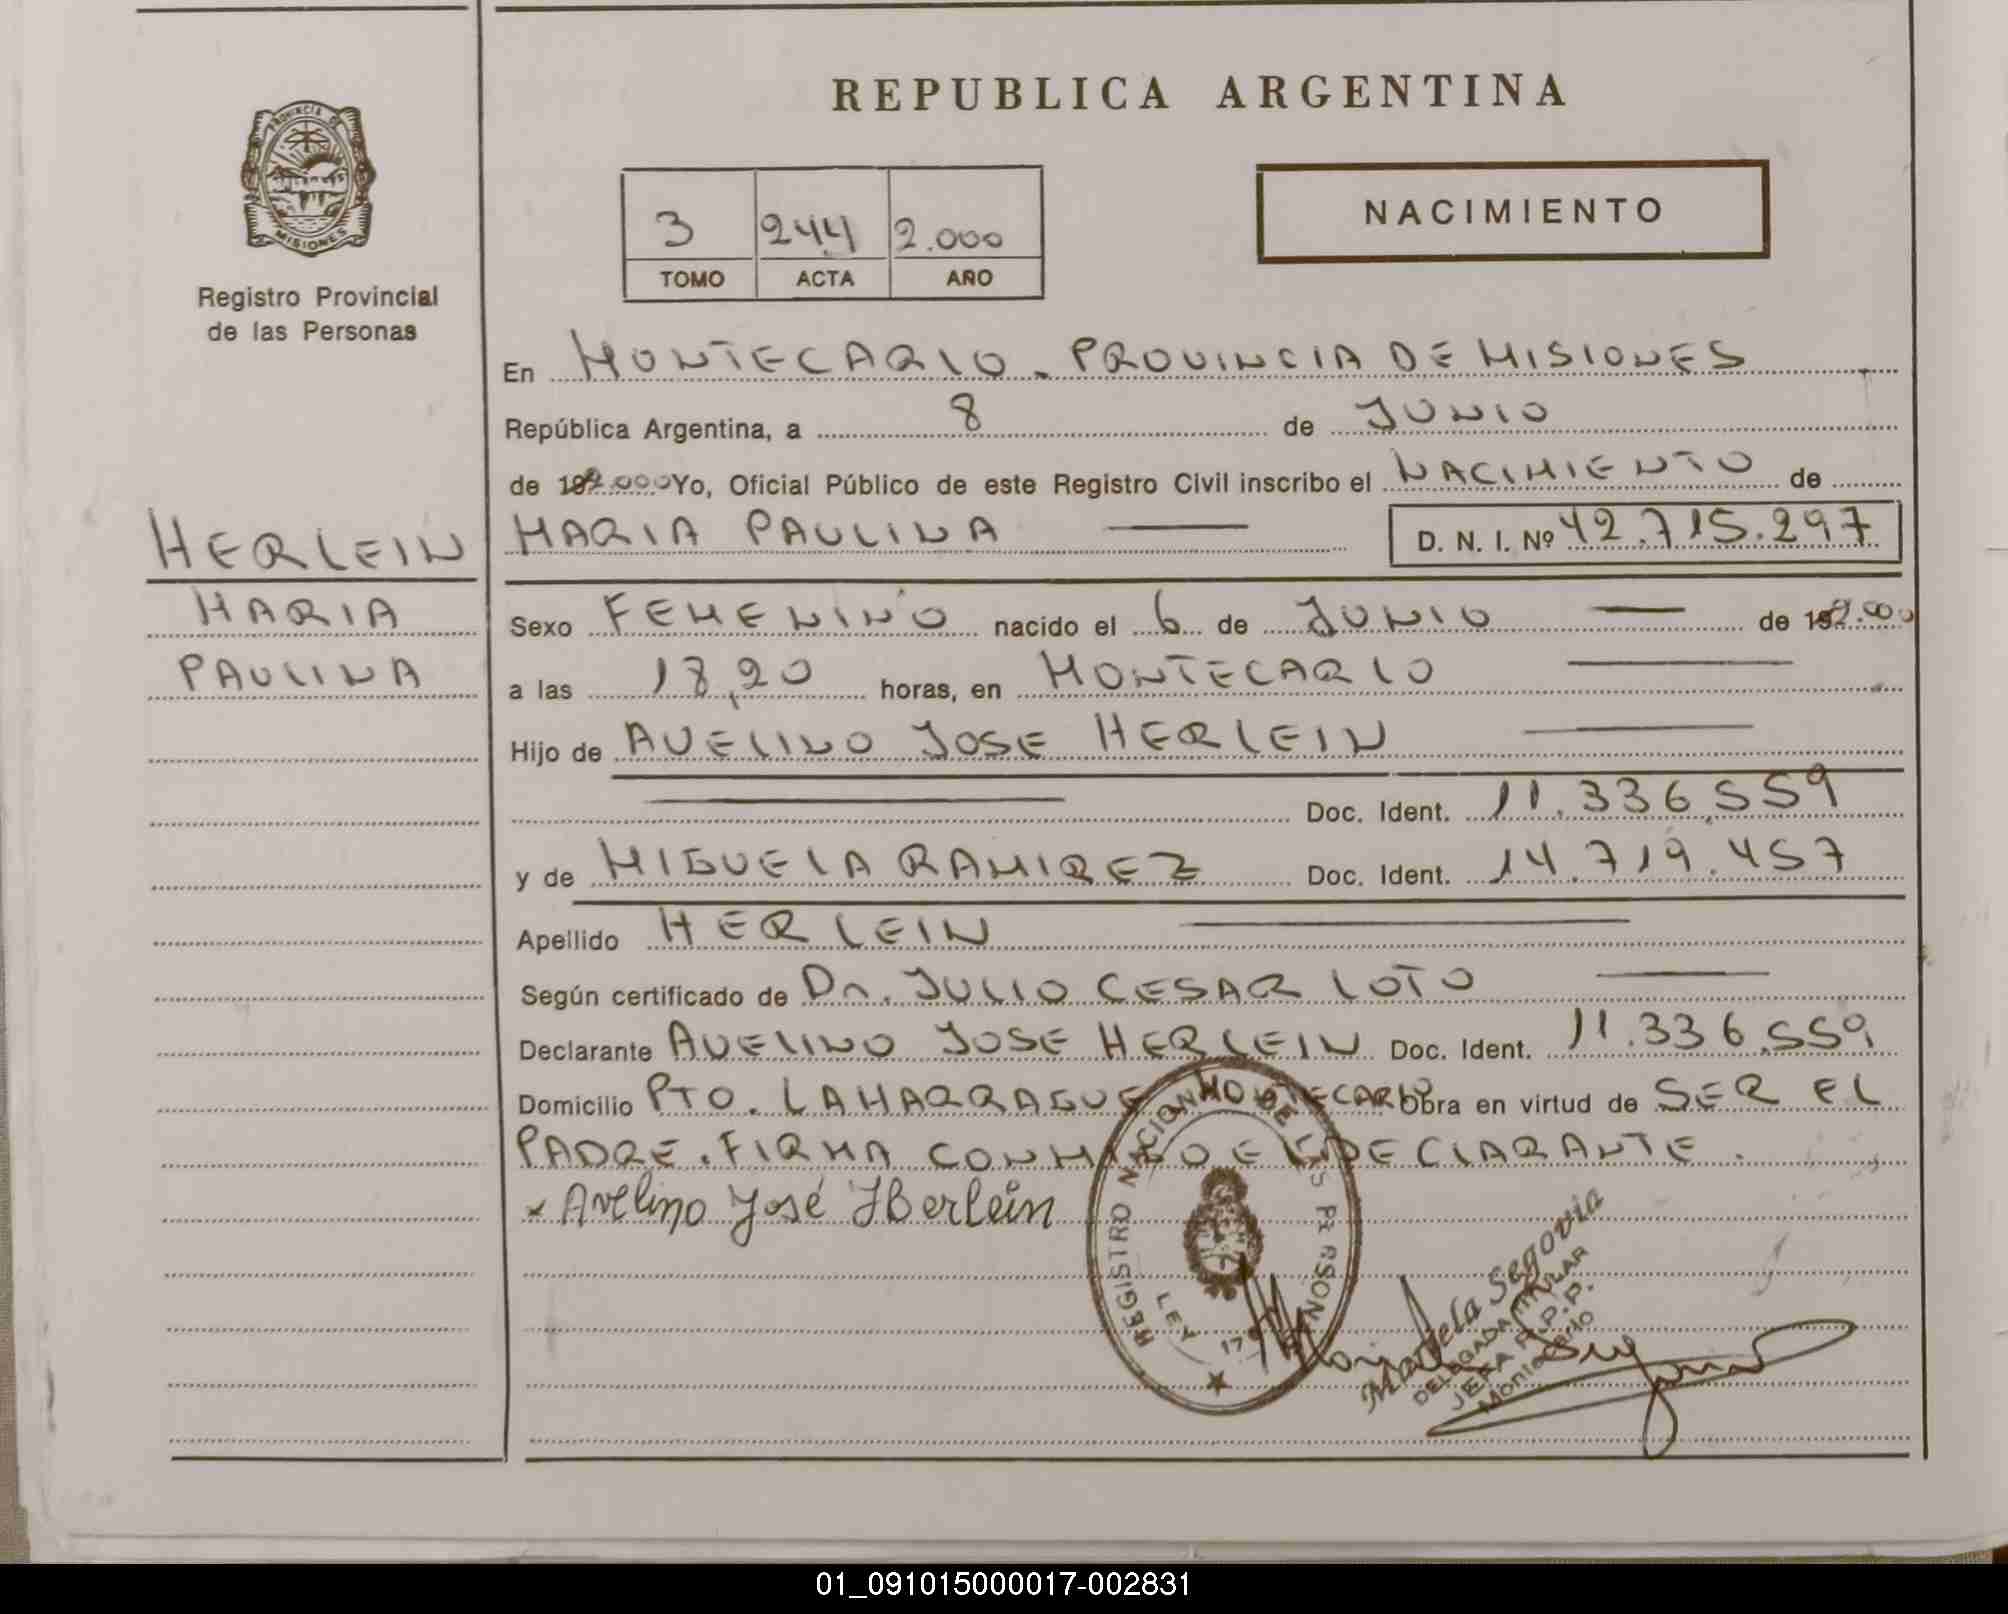 REPUBLICA ARGENTINA
PROVINCIA DE
MISIONES
Registro Provincial
de las Personas
3 244 2.000
TOMO ACTA AÑO
NACIMIENTO
En MONTECARLO. PROVINCIA DE MISIONES
República Argentina, a 8 de JUNIO
de 2.000 Yo, Oficial Público de este Registro Civil inscribo el NACIMIENTO de
HERLEIN
MARIA PAULINA
D. N. I. Nº 42.715.297
MARIA
Sexo FEMENINO nacido el 6 de JUNIO de 2.000
PAULINA
a las 18,20 horas, en MONTECARLO
Hijo de AVELINO JOSE HERLEIN
Doc. Ident. 11.336.559
y de MIGUELA RAMIREZ Doc. Ident. 14.719.457
Apellido HERLEIN
Según certificado de Dr. JULIO CESAR LOTO
Declarante AVELINO JOSE HERLEIN Doc. Ident. 11.336.559
Domicilio PTO. LAHARRAGUE MONTECARLO Obra en virtud de SER EL
PADRE. FIRMA CONMIGO EL DECLARANTE.
x Avelino José Herlein
REGISTRO NACIONAL DE LAS PERSONAS
LEY
Mariela Segovia
DELEGADA TITULAR
JEFA R.P.P.
Montecarlo
01_091015000017-002831